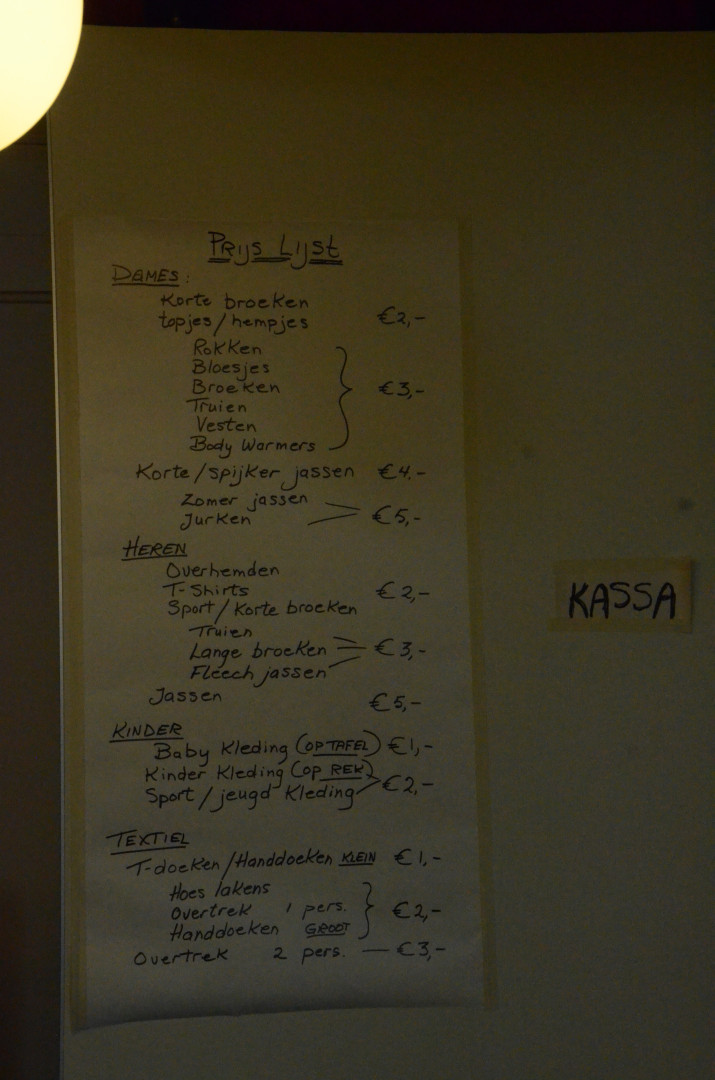 Prijs Lijst
DAMES:
Korte broeken
topjes/hempjes €2,-
Rokken
Bloesjes
Broeken €3,-
Truien
Vesten
Body Warmers
Korte/spijker jassen €4,-
Zomer jassen
Jurken €5,-
HEREN
Overhemden
T-Shirts €2,-
Sport/Korte broeken
Truien
Lange broeken €3,-
Fleech jassen
Jassen €5,-
KINDER
Baby Kleding (OP TAFEL) €1,-
Kinder Kleding (op REK)
Sport/jeugd Kleding €2,-
TEXTIEL
T-doeken/Handdoeken KLEIN €1,-
Hoes lakens
Overtrek 1 pers. €2,-
Handdoeken GROOT
Overtrek 2 pers. — €3,-
KASSA